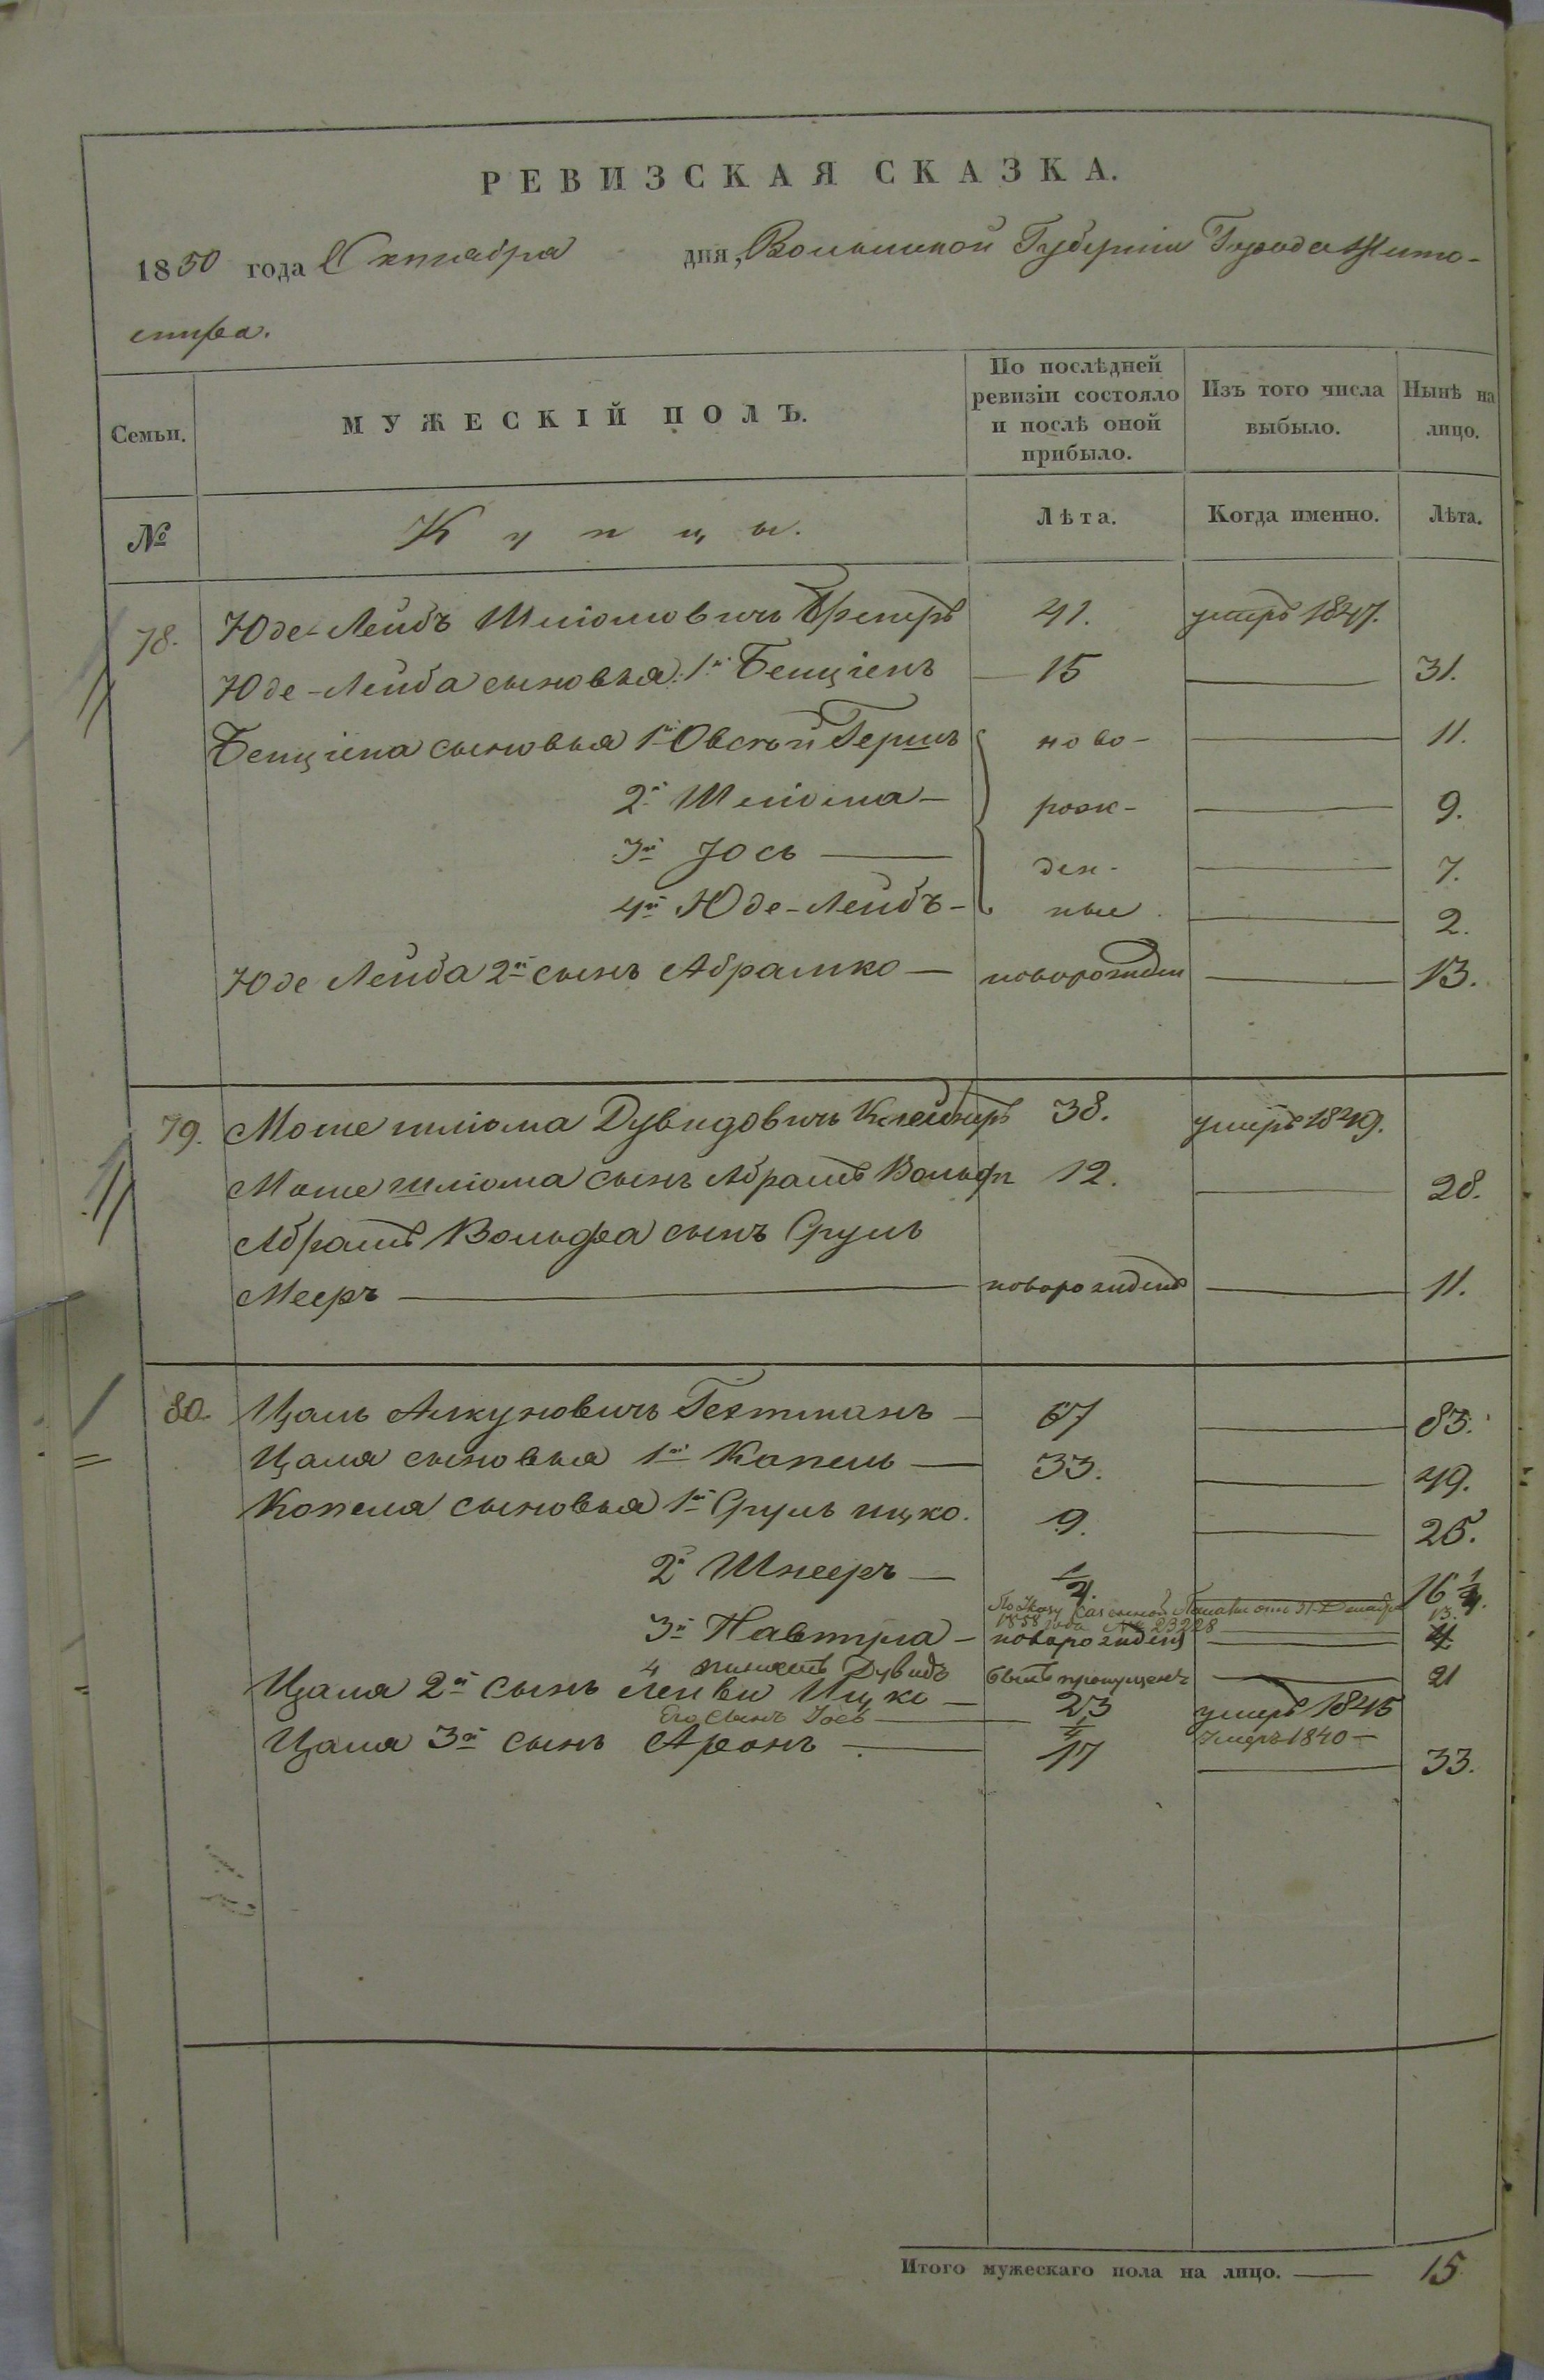 РЕВИЗСКАЯ СКАЗКА.
1850 года Октября дня, Волынской Губерніи Города Жито-
мира.
Семьи. МУЖЕСКІЙ ПОЛЪ. По послѣдней ревизіи состояло и послѣ оной прибыло. Изъ того числа выбыло. Нынѣ на лицо.
№ Купцы. Лѣта. Когда именно. Лѣта.
78. Юде-Лейбъ Шліомовичъ 41. умеръ 1847.
Юде-Лейба сыновья: 1й Бенціенъ 15 31.
Бенціена сыновья 1й Овсѣй Гершъ ново- 11.
2й Шліома рож- 9.
3й Іось ден- 7.
4й Юде-Лейбъ ные 2.
Юде Лейба 2й сынъ Абрамко новорожден 13.
79. Моше шліома Дувидовичъ 38. умеръ 1849.
Моше шліома сынъ Абрамъ Вольфъ 12. 28.
Абрамъ Вольфа сынъ Сруль
Мееръ новорожденъ 11.
80. Цаль Гехтманъ 67 83.
Цаля сыновья 1й Копель 33. 49.
Копеля сыновья 1й Сруль ицко. 9. 25.
2й Шнееръ 1/2. 16 1/2.
По Указу Казенной Палаты отъ 31 Декабря
1858 года № 23228 13.
3й Навтула новорожденъ 4
4 Дувидъ былъ пропущенъ 21
Цаля 2й сынъ Лейви Ицко 23 умеръ 1845
Его сынъ Іось 1/2 Умеръ 1840
Цаля 3й сынъ Аронъ 17 33.
Итого мужескаго пола на лицо. 15